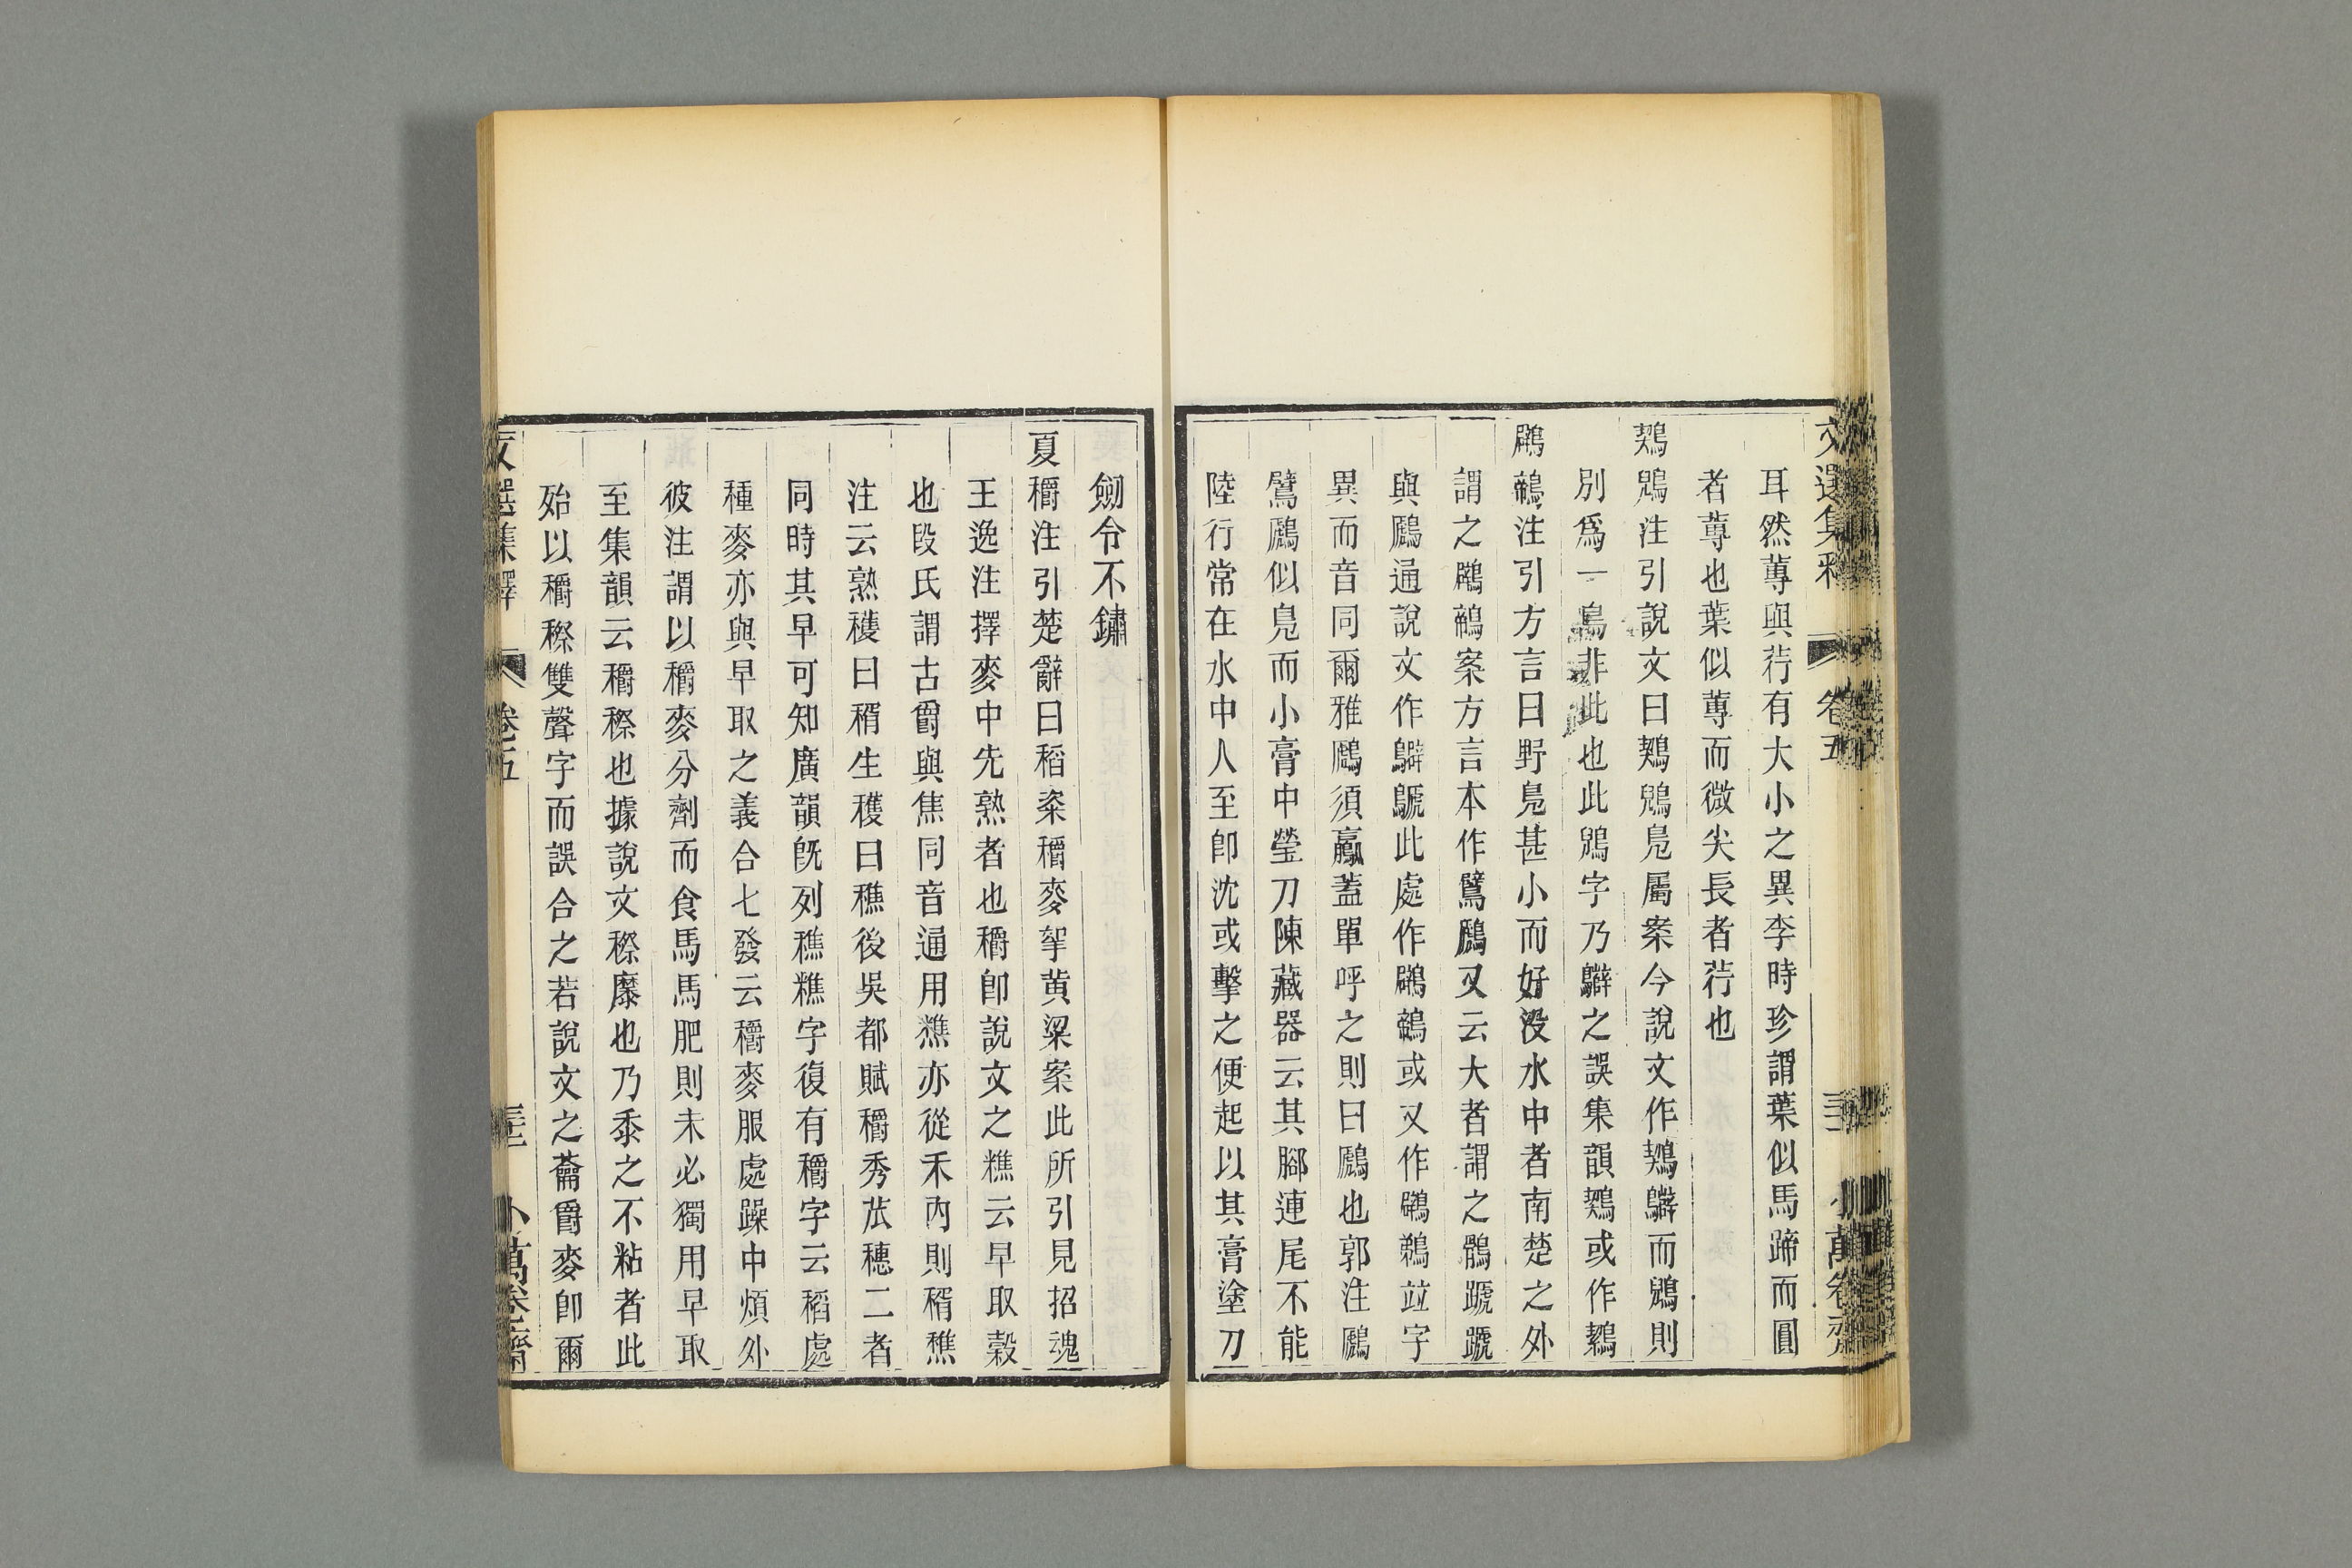 文選集釋 卷五 小萬卷齋
耳然蓴與荇有大小之異李時珍謂葉似馬蹄而圓
者蓴也葉似蓴而微尖長者荇也
鶈鶂注引說文曰鶈鶂鳧屬案今說文作鶈鷿而鶂則
別爲一鳥非此也此鶂字乃鷿之誤集韻鶈或作鶈
鷉鶺注引方言曰野鳧甚小而好没水中者南楚之外
謂之鷉鶺案方言本作鷿鷉又云大者謂之鶻蹏
與鷉通說文作鷿鷈此處作鷉鶺或又作鷉鵜竝字
異而音同爾雅鷉須鸁蓋單呼之則曰鷉也郭注鷉
鷿鷉似鳧而小膏中瑩刀陳藏器云其腳連尾不能
陸行常在水中人至卽沈或擊之便起以其膏塗刀
劒令不鏽
夏穱注引楚辭曰稻粢穱麥挐黃粱案此所引見招魂
王逸注擇麥中先熟者也穱卽說文之糕云早取穀
也段氏謂古爵與焦同音通用糕亦從禾內則稰穛
注云熟穫曰稰生穫曰穛後吳都賦穱秀菰穗二者
同時其早可知廣韻旣列穛糕字復有穱字云稻處
種麥亦與早取之義合七發云穱麥服處躁中煩外
彼注謂以穱麥分劑而食馬馬肥則未必獨用早取
至集韻云穱穄也據說文穄穈也乃黍之不粘者此
殆以穱穄雙聲字而誤合之若說文之蘥爵麥卽爾
文選集釋 卷五 小萬卷齋